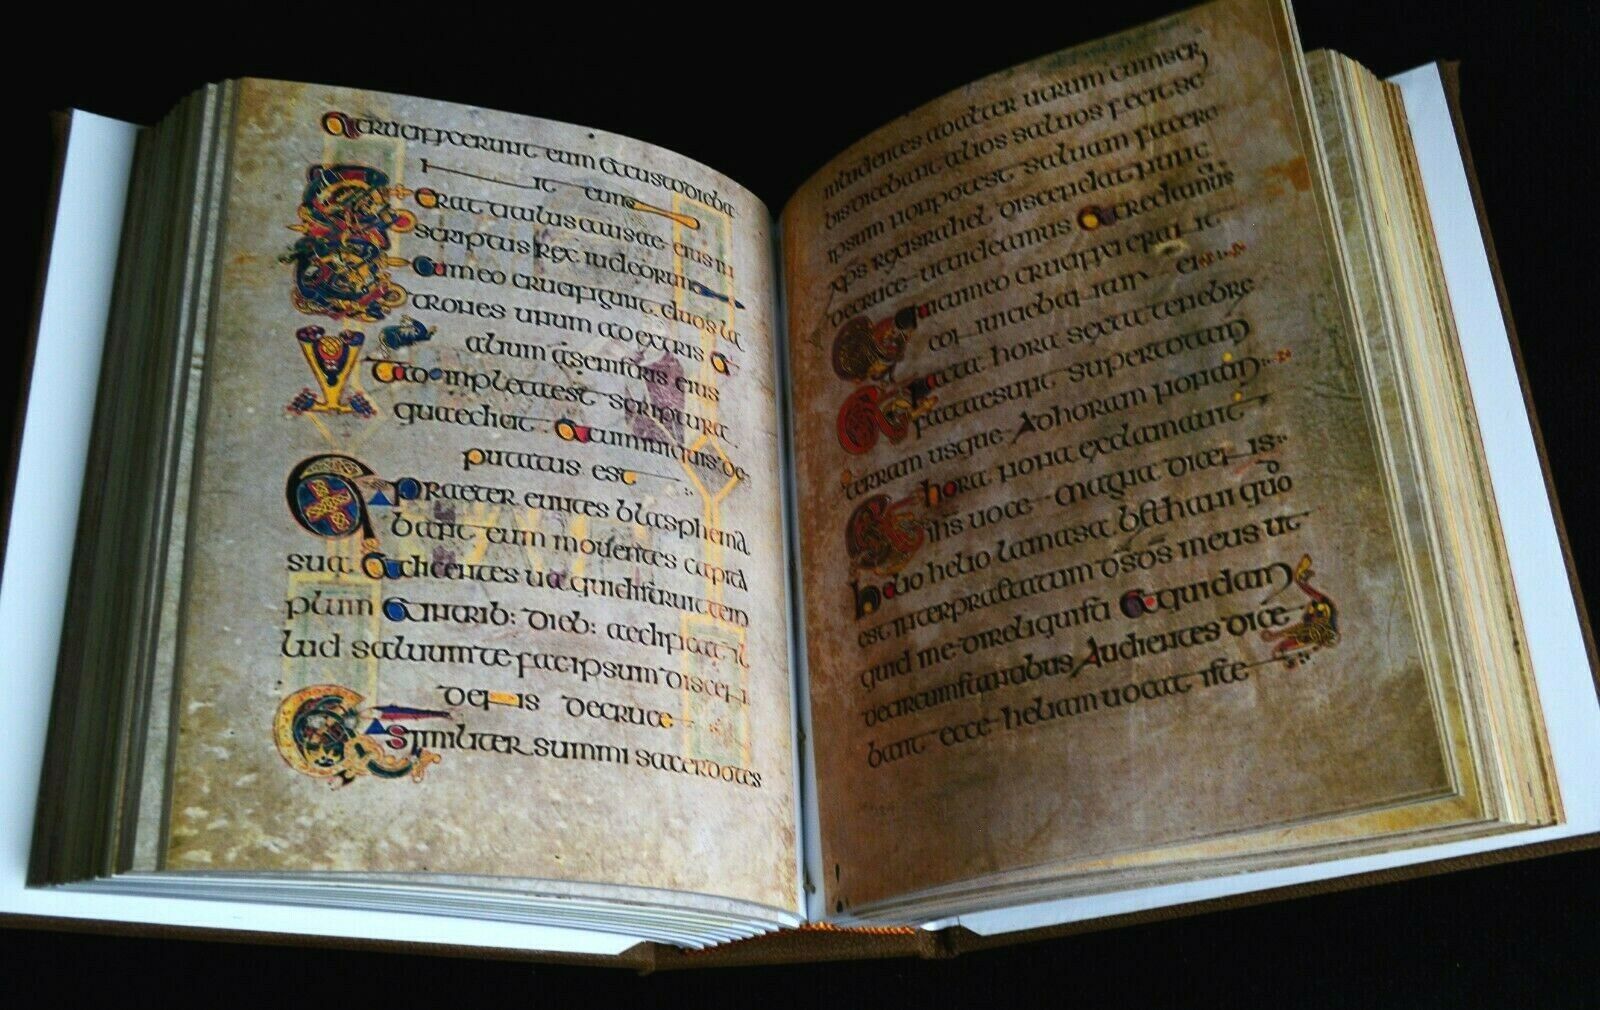 et crucifixerunt eum et custodieba
nt eum
et erat titulus causae eius in
scriptus rex iudeorum
et cum eo crucifigunt duos la
trones unum a dextris et
alium a senistris eius
et adinpleta est scriptura
quae dicit et cum iniquis de
putatus est
praeter euntes blasphema
bant eum mouentes capita
sua et dicentes ua qui distruit tem
plum et in trib: dieb: aedificat il
lud saluum te fac ipsum discen
dens de cruce
similiter summi sacerdotes
inludentes ad alter utrum cum scr
bis dicebant alios saluos fecit se
ipsum non potest saluum facere
xps rex israhel discendat nunc
de cruce ut uideamus et credamus
et qui cum eo crucifixi erant
conuiciabantur ei
et facta hora sexta tenebre
factae sunt super totam
terram usque ad horam nonam
et hora nona exclamauit
ihs uoce magna dicens
helio helio lamasa bacthani quod
est interpraetatum ds ds meus ut
quid me direliquisti et quidam
de circumstantibus audientes dice
bant ecce heliam uocat iste